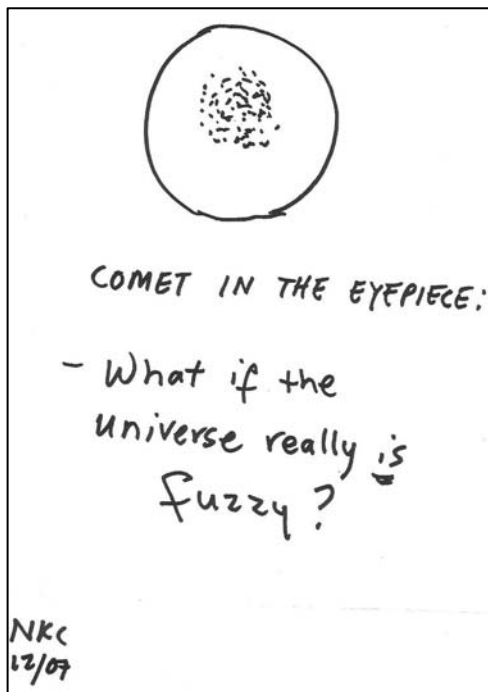 COMET IN THE EYEPIECE:
- What if the
universe really is
fuzzy?
NKC
12/07